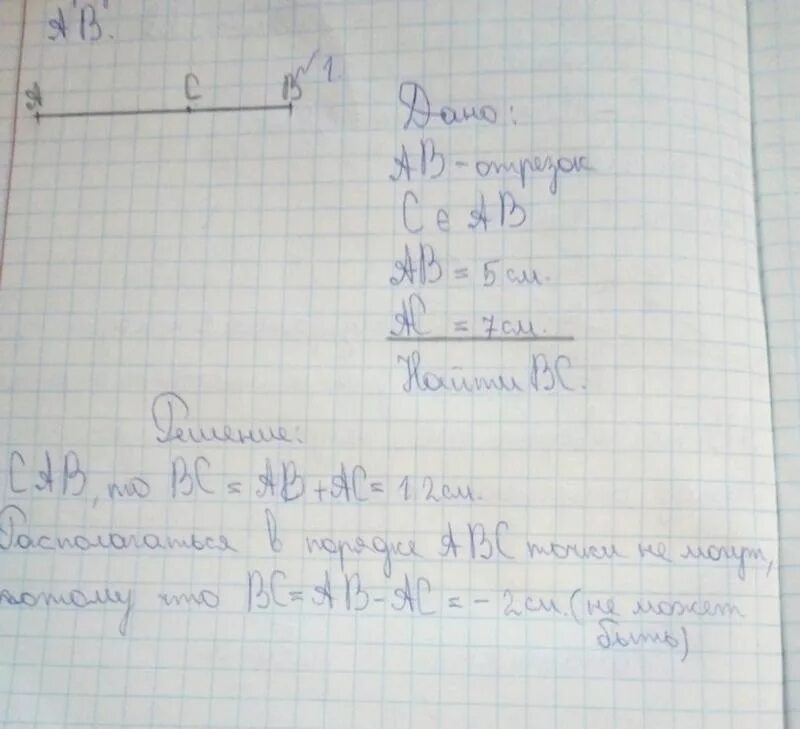 A'B'.
A C B 1.
Дано:
AB - отрезок
C ∈ AB
AB = 5 см.
AC = 7 см.
Найти BC.
Решение:
CAB, то BC = AB + AC = 12 см.
Располагаться в порядке ABC точки не могут,
потому что BC = AB - AC = - 2 см. (не может
быть)